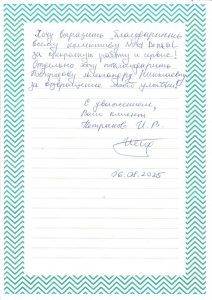 Хочу выразить благодарность
всему коллективу
за отличную работу и сервис!
Отдельно хочу поблагодарить
Александру Николаевну
за возвращение моей улыбки!
С уважением,
Ваш клиент
Петракова И. В.
06.08.2025